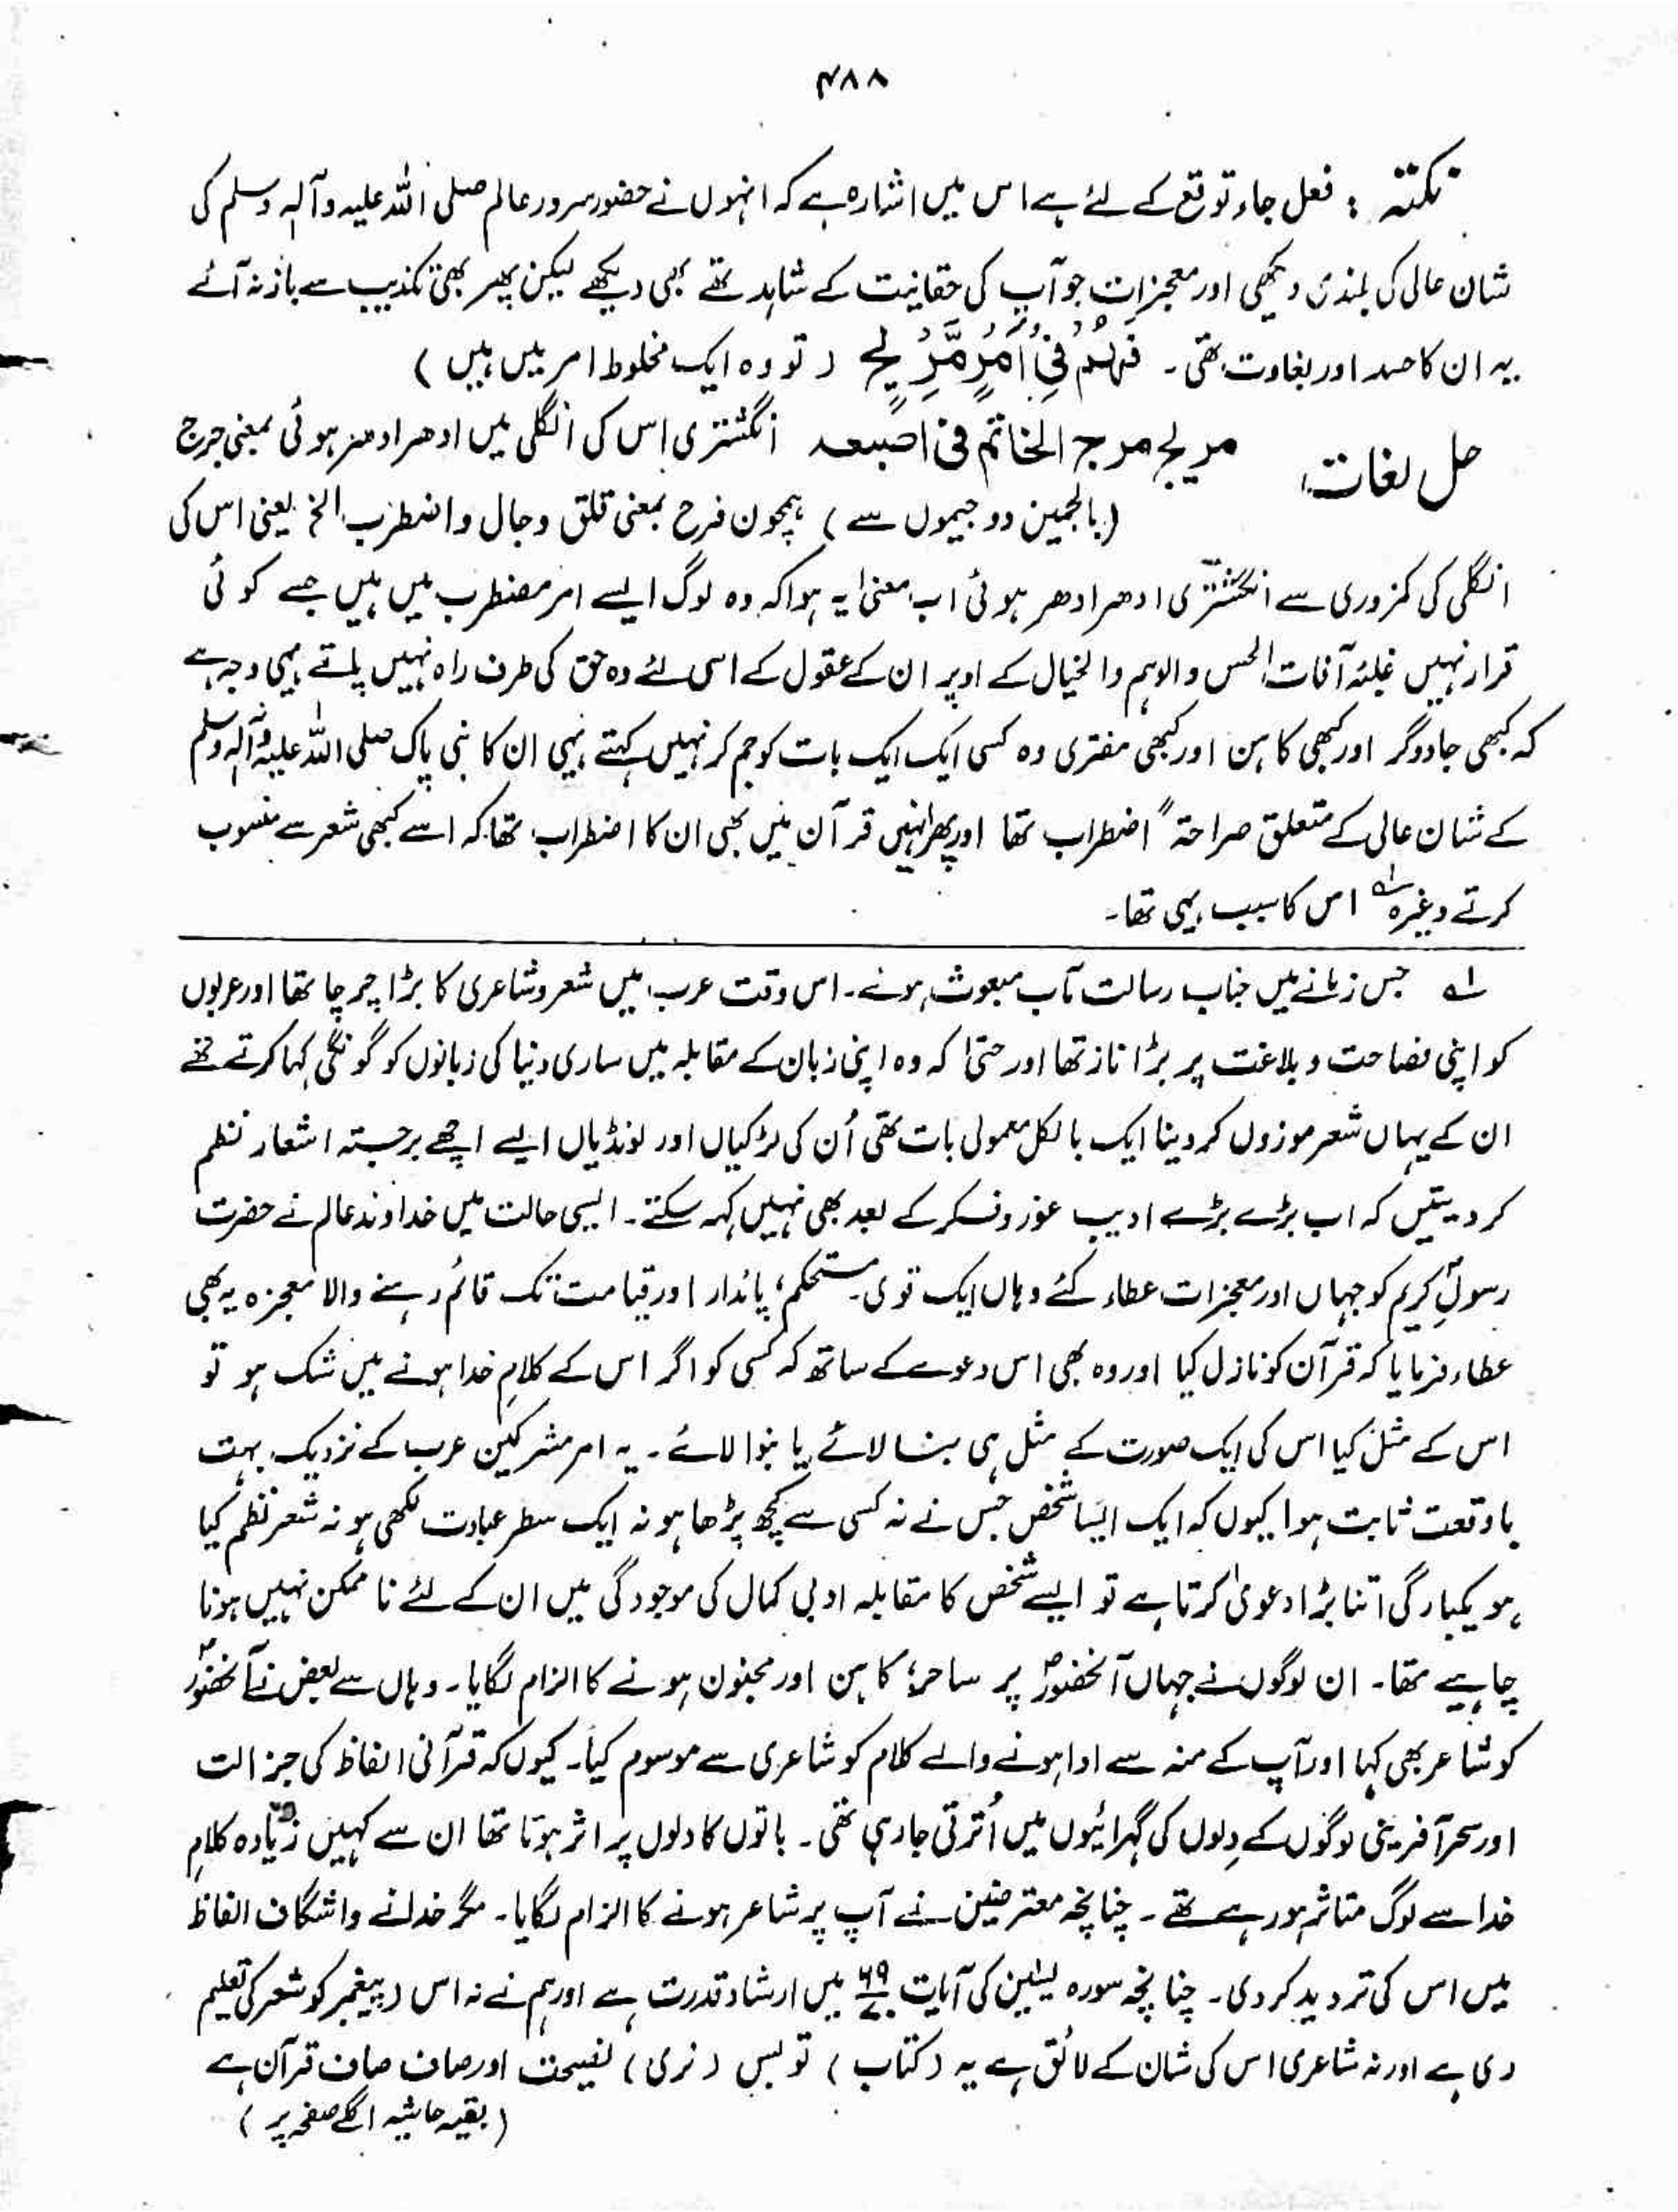 ۴۸۸
نکتہ : فعل جاء توقع کے لئے ہے اس میں اشارہ ہے کہ انہوں نے حضور سرور عالم صلی اللہ علیہ وآلہ وسلم کی
شان عالی کی بلندی دیکھی اور معجزات جو آپ کی حقانیت کے شاہد تھے بھی دیکھے لیکن پھر بھی تکذیب سے باز نہ آئے
یہ ان کا حسد اور بغاوت تھی۔ فَهُمْ فِیْ اَمْرٍ مَّرِیْجٍ ( تو وہ ایک مخلوط امر میں ہیں )
حل لغات مریج مرج الخاتم فی اصبعہ انگشتری اس کی انگلی میں ادھر ادھر ہوئی بمعنی جرج
(بالجیمین دو جیموں سے ) ہمچون فرح بمعنی قلق وجال واضطرب الخ یعنی اس کی
انگلی کی کمزوری سے انگشتری ادھر ادھر ہوئی اب معنیٰ یہ ہوا کہ وہ لوگ ایسے امر مضطرب میں ہیں جسے کوئی
قرار نہیں غلبۂ آفات الحس والوہم والخیال کے اوپر ان کے عقول کے اسی لئے وہ حق کی طرف راہ نہیں پاتے یہی وجہ ہے
کہ کبھی جادوگر اور کبھی کاہن اور کبھی مفتری وہ کسی ایک ایک بات کو جم کر نہیں کہتے یہی ان کا نبی پاک صلی اللہ علیہ وآلہ وسلم
کے شان عالی کے متعلق صراحتہ ً اضطراب تھا اور پھر انہیں قرآن میں بھی ان کا اضطراب تھا کہ اسے کبھی شعر سے منسوب
کرتے وغیرہ ؎۱ اس کا سبب یہی تھا۔
؎۱ جس زمانے میں جناب رسالت مآب مبعوث ہوئے۔ اس وقت عرب میں شعر و شاعری کا بڑا چرچا تھا اور عربوں
کو اپنی فصاحت و بلاغت پر بڑا ناز تھا اور حتیٰ کہ وہ اپنی زبان کے مقابلہ میں ساری دنیا کی زبانوں کو گونگی کہا کرتے تھے
ان کے یہاں شعر موزوں کر دینا ایک بالکل معمولی بات تھی اُن کی لڑکیاں اور لونڈیاں ایسے اچھے برجستہ اشعار نظم
کر دیتیں کہ اب بڑے بڑے ادیب غور و فکر کے بعد بھی نہیں کہہ سکتے۔ ایسی حالت میں خداوند عالم نے حضرت
رسولِ کریم کو جہاں اور معجزات عطاء کئے وہاں ایک قوی۔ مستحکم، پائدار اور قیامت تک قائم رہنے والا معجزہ یہ بھی
عطاء فرمایا کہ قرآن کو نازل کیا اور وہ بھی اس دعوے کے ساتھ کہ کسی کو اگر اس کے کلامِ خدا ہونے میں شک ہو تو
اس کے مثل کیا اس کی ایک صورت کے مثل ہی بنا لائے یا بنوا لائے۔ یہ امر مشرکین عرب کے نزدیک بہت
باوقعت ثابت ہوا کیوں کہ ایک ایسا شخص جس نے نہ کسی سے کچھ پڑھا ہو نہ ایک سطر عبادت لکھی ہو نہ شعر نظم کیا
ہو یکبارگی اتنا بڑا دعویٰ کرتا ہے تو ایسے شخص کا مقابلہ ادبی کمال کی موجودگی میں ان کے لئے نا ممکن نہیں ہونا
چاہیے تھا۔ ان لوگوں نے جہاں آنحضورؐ پر ساحر، کاہن اور مجنون ہونے کا الزام لگایا۔ وہاں سے بعض نے آنحضورؐ
کو شاعر بھی کہا اور آپ کے منہ سے ادا ہونے والے کلام کو شاعری سے موسوم کیا۔ کیوں کہ قرآنی الفاظ کی جزالت
اور سحر آفرینی لوگوں کے دِلوں کی گہرائیوں میں اُترتی جا رہی تھی۔ باتوں کا دلوں پر اثر ہوتا تھا ان سے کہیں زیادہ کلامِ
خدا سے لوگ متاثر ہو رہے تھے۔ چنانچہ معترضین نے آپ پر شاعر ہونے کا الزام لگایا۔ مگر خدا نے واشگاف الفاظ
میں اس کی تردید کر دی۔ چنانچہ سورہ یٰسین کی آیات ۶۹/۷۰ میں ارشاد قدرت ہے اور ہم نے نہ اس (پیغمبر کو شعر کی تعلیم
دی ہے اور نہ شاعری اس کی شان کے لائق ہے یہ ( کتاب ) تو بس ( نری ) نصیحت اور صاف صاف قرآن ہے
( بقیہ حاشیہ اگلے صفحہ پر )